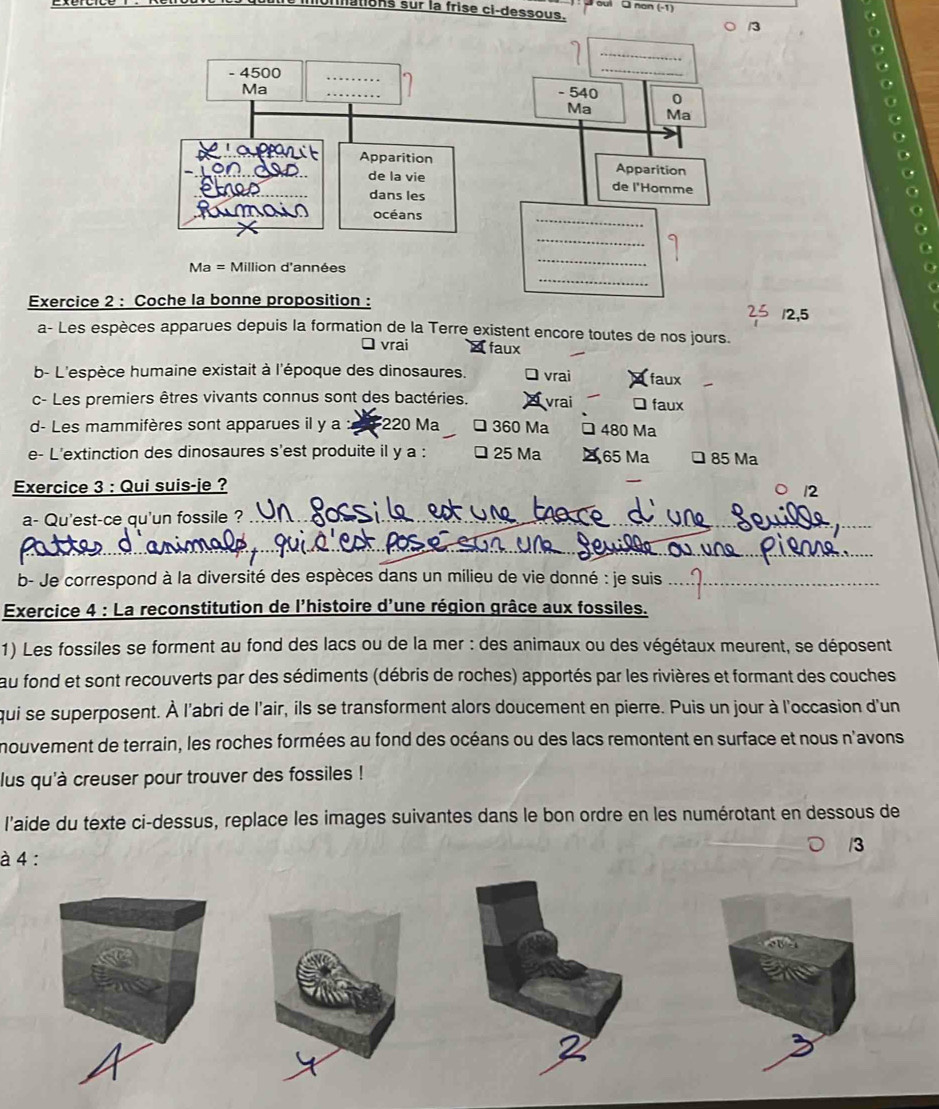 mations sur la frise ci-dessous.
oui ❑ non (-1)
0 /3
?
- 4500
Ma
?
- 540
Ma
0
Ma
L'apparit
-ion des
Êtres
Rumain
Apparition
de la vie
dans les
océans
Apparition
de l'Homme
?
Ma = Million d'années
Exercice 2 : Coche la bonne proposition :
25 /2,5
a- Les espèces apparues depuis la formation de la Terre existent encore toutes de nos jours.
❑ vrai ☒ faux
b- L'espèce humaine existait à l'époque des dinosaures. ❑ vrai ☒ faux
c- Les premiers êtres vivants connus sont des bactéries. ☒ vrai ❑ faux
d- Les mammifères sont apparues il y a : ☒ 220 Ma ❑ 360 Ma ❑ 480 Ma
e- L'extinction des dinosaures s'est produite il y a : ❑ 25 Ma ☒ 65 Ma ❑ 85 Ma
Exercice 3 : Qui suis-je ?
0 /2
a- Qu'est-ce qu'un fossile ? Un fossile est une trace d'une feuille,
pattes d'animals, qui c'est posé sur une feuille ou une pierre.
b- Je correspond à la diversité des espèces dans un milieu de vie donné : je suis ?
Exercice 4 : La reconstitution de l'histoire d'une région grâce aux fossiles.
1) Les fossiles se forment au fond des lacs ou de la mer : des animaux ou des végétaux meurent, se déposent
au fond et sont recouverts par des sédiments (débris de roches) apportés par les rivières et formant des couches
qui se superposent. À l'abri de l'air, ils se transforment alors doucement en pierre. Puis un jour à l'occasion d'un
mouvement de terrain, les roches formées au fond des océans ou des lacs remontent en surface et nous n'avons
lus qu'à creuser pour trouver des fossiles !
l'aide du texte ci-dessus, replace les images suivantes dans le bon ordre en les numérotant en dessous de
à 4 :
0 /3
1 4 2 3